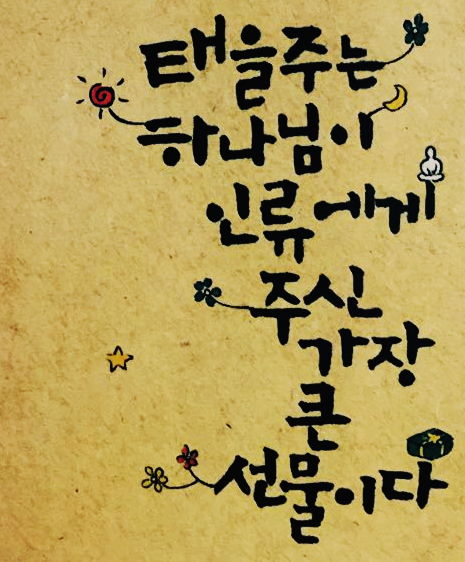 태을주는
하나님이
인류에게
주신
가장
큰
선물이다